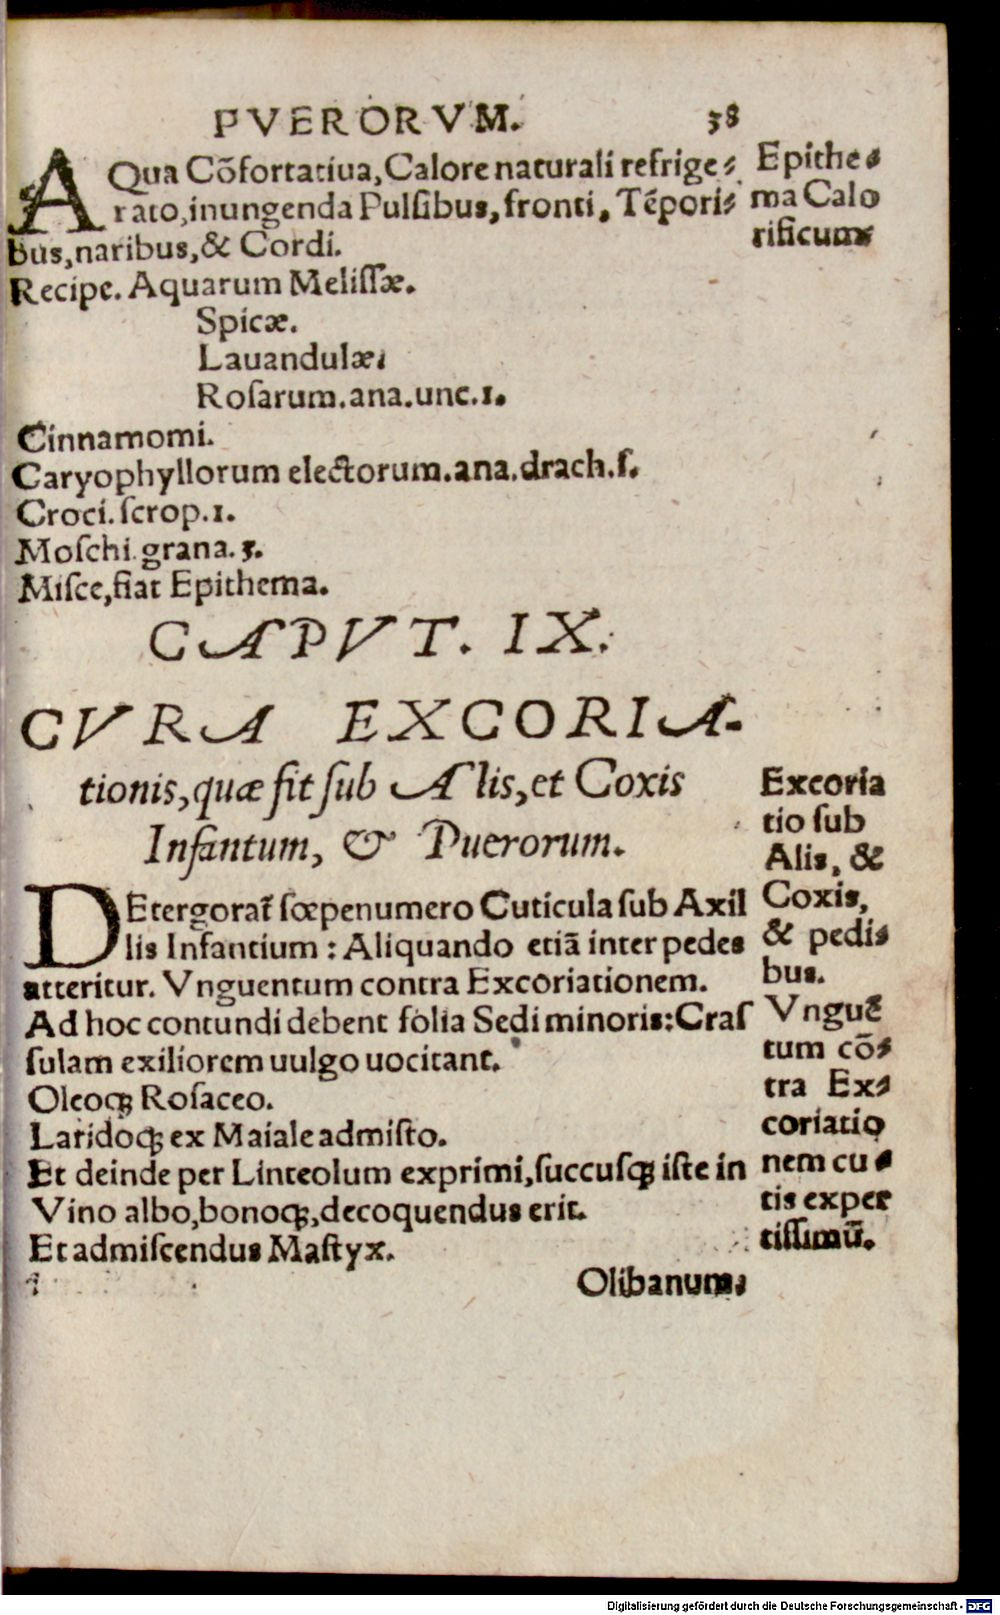 PVERORVM. 38
AQua Cõfortatiua, Calore naturali refrige⸗
rato, inungenda Pulſibus, fronti, Tẽpori⸗
bus, naribus, & Cordi.
Epithe⸗
ma Calo
rificum⸗
Recipe. Aquarum Meliſſæ.
Spicæ.
Lauandulæ.
Roſarum. ana. unc. 1.
Cinnamomi.
Caryophyllorum electorum. ana. drach. ſ.
Croci. ſcrop. 1.
Moſchi grana. 3.
Miſce, fiat Epithema.
CAPVT. IX.
CVRA EXCORIA-
tionis, quæ fit ſub Alis, et Coxis
Infantum, & Puerorum.
DEtergorat᷑ ſœpenumero Cuticula ſub Axil
lis Infantium : Aliquando etiã inter pedes
atteritur. Vnguentum contra Excoriationem.
Ad hoc contundi debent folia Sedi minoris: Craſ
ſulam exiliorem uulgo uocitant.
Oleoq; Roſaceo.
Laridoq; ex Maiale admiſto.
Et deinde per Linteolum exprimi, ſuccuſq; iſte in
Vino albo, bonoq;, decoquendus erit.
Et admiſcendus Maſtyx.
Excoria
tio ſub
Alis, &
Coxis,
& pedi⸗
bus.
Vnguẽ
tum cõ⸗
tra Ex⸗
coriatio
nem cu⸗
tis exper
tiſſimũ.
Olibanum.
Digitalisierung gefördert durch die Deutsche Forschungsgemeinschaft - DFG